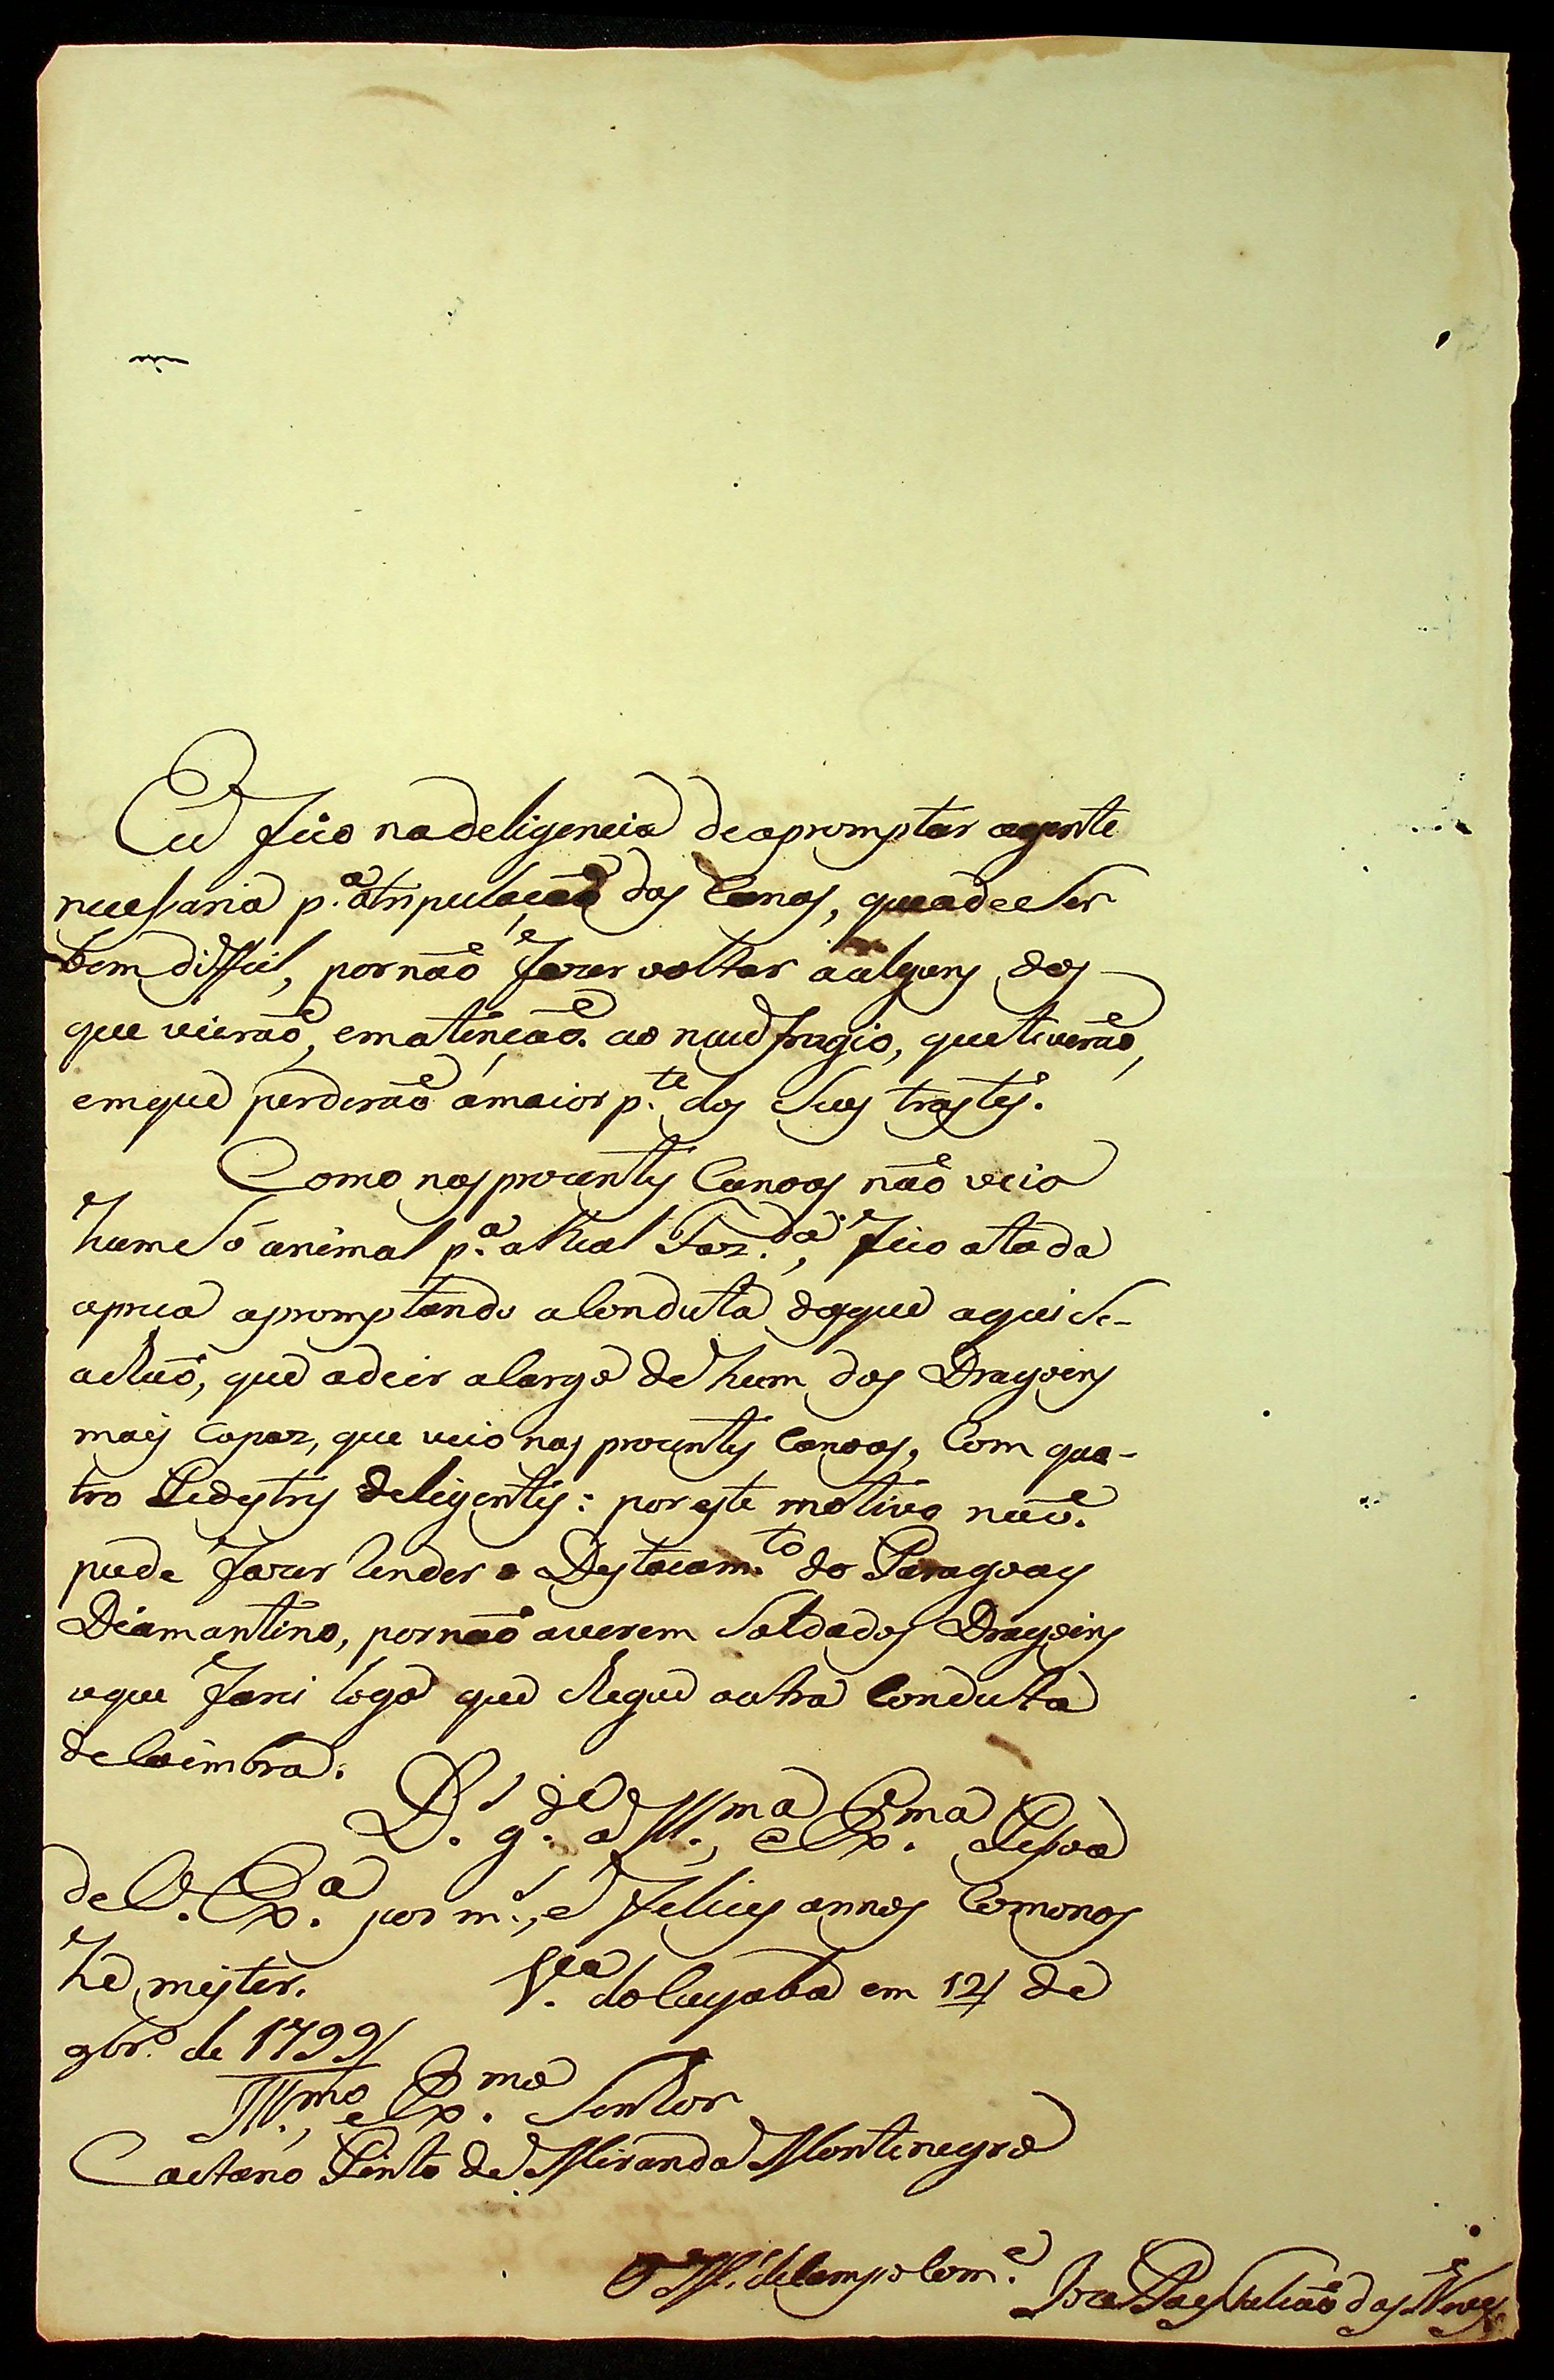 Eu fico na deligencia de apromptar a gente
necessaria p.ª a tripulação das Canoas, que a de Ser
bem difficil, por não fazer voltar a alguns dos
que vierão, em atenção ao naufragio, que tiverão,
em que perderão a maior p.te dos Seus trastes.
Como nas prezentes Canoas não veio
hum só animal p.ª a Real Faz.da, fico a toda
a preça apromptando a Conduta dos que aqui Se
achão, que a de ir a Cargo de hum dos Dragoens
mais Capaz, que veio nas prezentes Canoas, Com qua-
tro Pedestres deligentes: por este motivo não
pude fazer Render o Destacam.to do Paraguay
Diamantino, por não averem Soldados Dragoens
o que farei logo que chegue outra Conduta
de Coimbra.
D.s g.de a Ill.ma, e Ex.ma Pessoa
de V. Ex.ª por m.s, e felices annos Como nos
he mister. V.ª do Cuyabá em 12 de
9br.º de 1799
Ill.mo, e Ex.mo Senhor
Caetano Pinto de Miranda Montenegro
O M.e de Campo Com.e Joze Paes Falcão das Neves